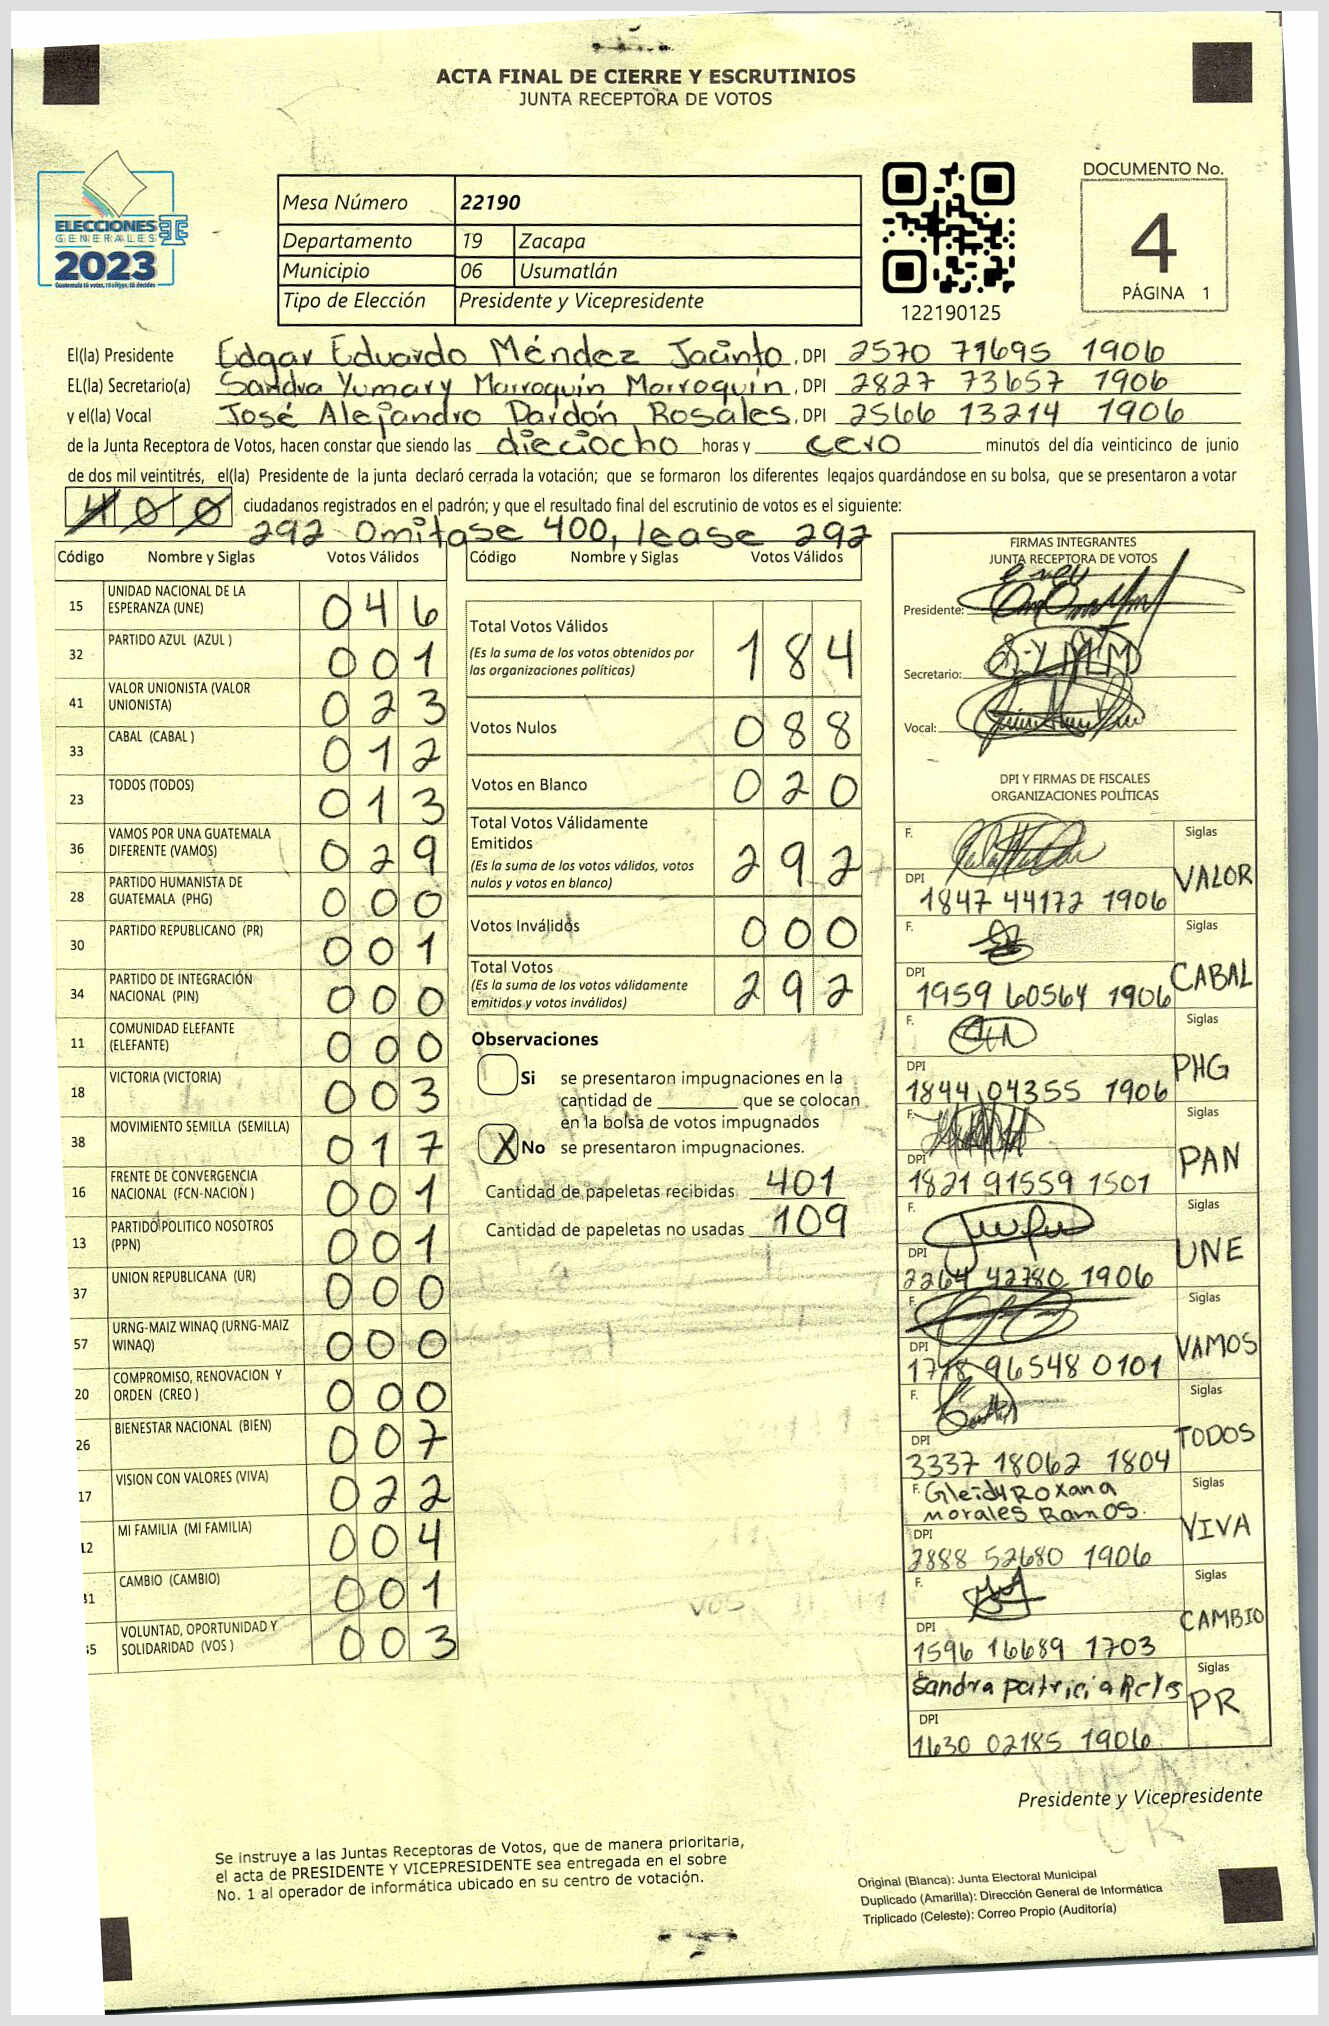 ACTA FINAL DE CIERRE Y ESCRUTINIOS
JUNTA RECEPTORA DE VOTOS
ELECCIONES
GENERALES
2023
Mesa Número 22190
Departamento 19 Zacapa
Municipio 06 Usumatlán
Tipo de Elección Presidente y Vicepresidente
122190125
DOCUMENTO No.
4
PÁGINA 1
El(la) Presidente Edgar Eduardo Méndez Jacinto, DPI 2570 71695 1906
EL(la) Secretario(a) Sandra Yumary Marroquín Marroquín, DPI 2827 73657 1906
y el(la) Vocal José Alejandro Dardón Rosales, DPI 2566 13214 1906
de la Junta Receptora de Votos, hacen constar que siendo las dieciocho horas y cero minutos del día veinticinco de junio
de dos mil veintitrés, el(la) Presidente de la junta declaró cerrada la votación; que se formaron los diferentes legajos guardándose en su bolsa, que se presentaron a votar
400 ciudadanos registrados en el padrón; y que el resultado final del escrutinio de votos es el siguiente:
292 Omitase 400, lease 292
Código Nombre y Siglas Votos Válidos
15 UNIDAD NACIONAL DE LA
ESPERANZA (UNE) 046
32 PARTIDO AZUL (AZUL ) 001
41 VALOR UNIONISTA (VALOR
UNIONISTA) 023
33 CABAL (CABAL ) 012
23 TODOS (TODOS) 013
36 VAMOS POR UNA GUATEMALA
DIFERENTE (VAMOS) 029
28 PARTIDO HUMANISTA DE
GUATEMALA (PHG) 000
30 PARTIDO REPUBLICANO (PR) 001
34 PARTIDO DE INTEGRACIÓN
NACIONAL (PIN) 000
11 COMUNIDAD ELEFANTE
(ELEFANTE) 000
18 VICTORIA (VICTORIA) 003
38 MOVIMIENTO SEMILLA (SEMILLA) 017
16 FRENTE DE CONVERGENCIA
NACIONAL (FCN-NACION ) 001
13 PARTIDO POLITICO NOSOTROS
(PPN) 001
37 UNION REPUBLICANA (UR) 000
57 URNG-MAIZ WINAQ (URNG-MAIZ
WINAQ) 000
20 COMPROMISO, RENOVACION Y
ORDEN (CREO ) 000
26 BIENESTAR NACIONAL (BIEN) 007
17 VISION CON VALORES (VIVA) 022
12 MI FAMILIA (MI FAMILIA) 004
31 CAMBIO (CAMBIO) 001
35 VOLUNTAD, OPORTUNIDAD Y
SOLIDARIDAD (VOS ) 003
Código Nombre y Siglas Votos Válidos
Total Votos Válidos 184
(Es la suma de los votos obtenidos por
las organizaciones políticas)
Votos Nulos 088
Votos en Blanco 020
Total Votos Válidamente
Emitidos 292
(Es la suma de los votos válidos, votos
nulos y votos en blanco)
Votos Inválidos 000
Total Votos 292
(Es la suma de los votos válidamente
emitidos y votos inválidos)
Observaciones
Si se presentaron impugnaciones en la
cantidad de ________ que se colocan
en la bolsa de votos impugnados
X No se presentaron impugnaciones.
Cantidad de papeletas recibidas 401
Cantidad de papeletas no usadas 109
FIRMAS INTEGRANTES
JUNTA RECEPTORA DE VOTOS
Presidente:
Secretario:
Vocal:
DPI Y FIRMAS DE FISCALES
ORGANIZACIONES POLÍTICAS
F. Siglas
VALOR
DPI
1847 44172 1906
F. Siglas
CABAL
DPI
1959 60564 1906
F. Siglas
PHG
DPI
1844 04355 1906
F. Siglas
PAN
DPI
1821 91559 1501
F. Siglas
UNE
DPI
2264 42780 1906
F. Siglas
VAMOS
DPI
1718 96548 0101
F. Siglas
TODOS
DPI
3337 18062 1804
F. Gleidy Roxana Siglas
Morales Ramos.
VIVA
DPI
2888 52680 1906
F. Siglas
CAMBIO
DPI
1596 16689 1703
F. Sandra Patricia Reyes Siglas
PR
DPI
1630 02185 1906
Presidente y Vicepresidente
Se instruye a las Juntas Receptoras de Votos, que de manera prioritaria,
el acta de PRESIDENTE Y VICEPRESIDENTE sea entregada en el sobre
No. 1 al operador de informática ubicado en su centro de votación.
Original (Blanca): Junta Electoral Municipal
Duplicado (Amarilla): Dirección General de Informática
Triplicado (Celeste): Correo Propio (Auditoría)